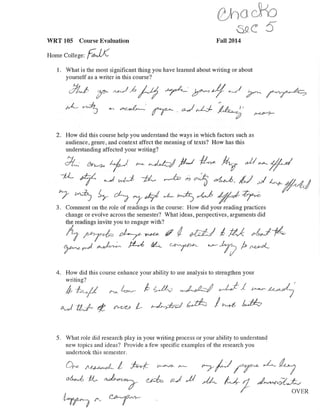 Chacko
Sec 5
WRT 105 Course Evaluation Fall 2014
Home College: Falk
1. What is the most significant thing you have learned about writing or about
yourself as a writer in this course?
That you need to fully explain yourself and your perspective
when writing an academic paper, and what "literacy" means
2. How did this course help you understand the ways in which factors such as
audience, genre, and context affect the meaning of texts? How has this
understanding affected your writing?
This course helped me understand that these things all can affect
the style and what the writer is writing about. And it has affected
my writing by my style when writing about different topics
3. Comment on the role of readings in the course: How did your reading practices
change or evolve across the semester? What ideas, perspectives, arguments did
the readings invite you to engage with?
My perspective I started to think about the
genre and audience that the is to read.
4. How did this course enhance your ability to use analysis to strengthen your
writing?
It taught me how to understand what I was reading
and that once I understood better I wrote better
5. What role did research play in your writing process or your ability to understand
new topics and ideas? Provide a few specific examples of the research you
undertook this semester.
One research I took was on my final paper when
about the advocacy center and all other kinds of
happening on campus
OVER